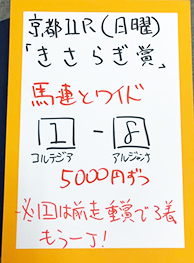 京都11R(日曜)
「きさらぎ賞」
馬連とワイド
1 - 8
コルテジア アルジャンナ
5000円ずつ
→必1は前走重賞で3着
もう一丁!